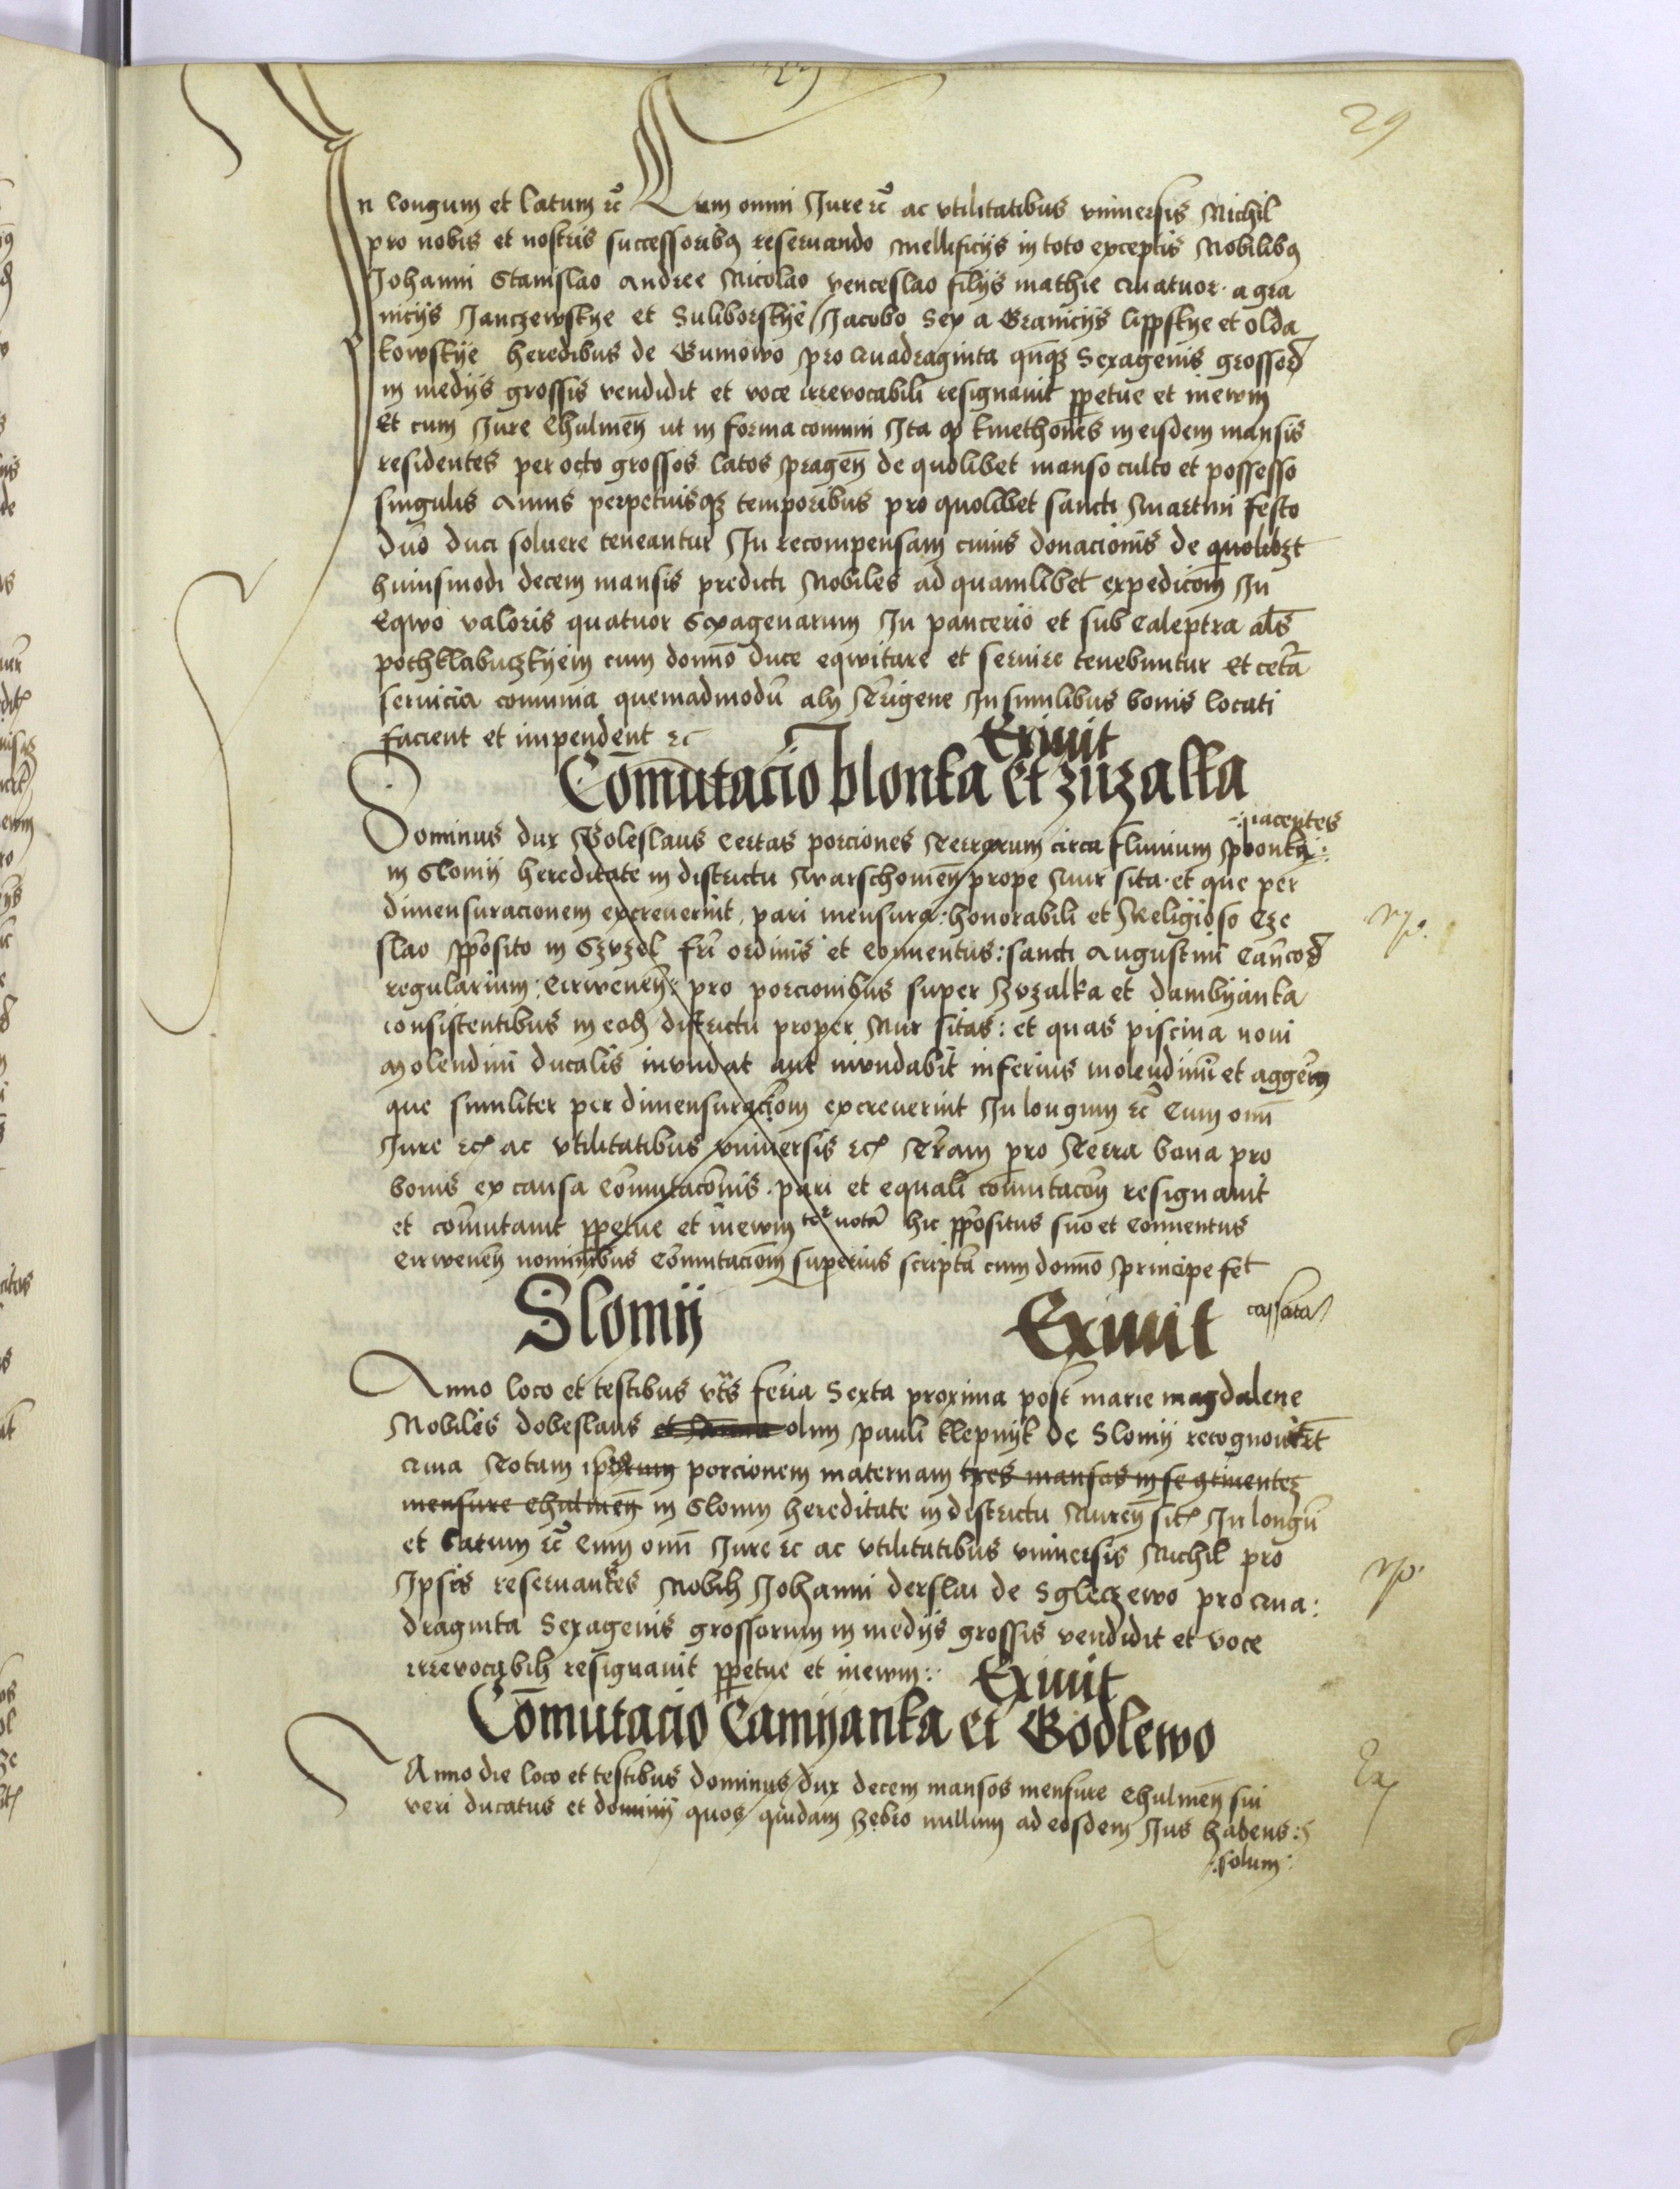 29
In longum et latum rc̃ Cum omni Jure rc̃ ac vtilitatibus vniuersis Nichil
pro nobis et nostris successoribꝫ reseruando mellificijs in toto exceptis Nobilibꝫ
Johanni Stanislao Andree Nicolao venceslao filijs mathie Quatuor a gra
nicijs Janczewskye et Suliborskye / Jacobo Sex a Granicijs lippskye et olda
kowskye heredibus de Gumowo pro Quadraginta quinqꝫ Sexagenis grossoꝝ
in medijs grossis vendidit et voce irreuocabili resignauit ꝑpetue et inewm
Et cum Jure Chulmeñ ut in forma communi Ita ꝙ kmethones in eisdem mansis
residentes per octo grossos latos prageñ de quolibet manso culto et possesso
singulis Annis perpetuisqꝫ temporibus pro quolibet sancti Martini festo
dño duci soluere teneantur In recompensam cuius donacionis de quolibꝫt
huiusmodi decem mansis predicti Nobiles ad quamlibet expedicõm In
Eqwo valoris quatuor Sexagenarum In pancerio et sub Caleptra als̃
pothklabuczkyem cum domño duce eqwitare et seruire tenebuntur Et cetã
seruicia communia quemadmodũ alij Terrigene In similibus bonis locati
facient et impendent rc
Exiuit
Com̃utacio blonka et zuzalka
Dominus dux Boleslaus Certas porciones Terrarum circa fluuium blonka :iacentes
in Slomy hereditate in districtu Warschouieñ prope Nur sita et que per
dimensuracionem excreuerint pari mensura: honorabili et Religioso Cze
slao ꝓposito in Szvzel fri ordinis et Conuentus: sancti Augustini Cañcoꝝ
regularium: Cirweneñ: pro porcionibus super Zvzalka et dambyanka
consistentibus in eoꝺ districtu proper Nur sitas: et quas piscina noui
molendini ducalis inundat aut inundabit inferius molendinũ et aggerem
que similiter per dimensuracõm excreuerint In longum rc̃ Cum omi
Jure rc ac vtilitatibus vniuersis rc Terram pro Terra bona pro
bonis ex causa Com̃utacõnis pari et equali com̃utacõn resignauit
et com̃utauit ꝑpetue et inewm hic ꝓpositus suo et Conuentus
Cirweneñ nominibus Com̃utacõm superius scriptã cum domño principe fet
Slomij Exiuit cassata
Anno loco et testibus vt̃s feria Sexta proxima post marie magdalene
Nobiles dobeslaus olim pauli klepnyk de Slomij recognouit
Quia Totam porcionem maternam tres mansos in se ꝯtinentes
mensure Chulmeñ in Slomij hereditate in districtu Nureñ sit In longũ
et latum rc̃ Cum omi Jure rc ac vtilitatibus vniuersis Nichil pro
Ipsis reseruantes Nobili Johanni derslai de Sgleczewo pro Qua:
draginta Sexagenis grossorum in medijs grossis vendidit et voce
irreuocabili resignauit ꝑpetue et inewm: Exiuit
Com̃utacio Camyanka et Godlewo
Anno die loco et testibus dominus dux decem mansos mensure Chulmeñ sui
veri ducatus et dominij quos quidam Zebro nullum ad eosdem Jus habens:
:solum: